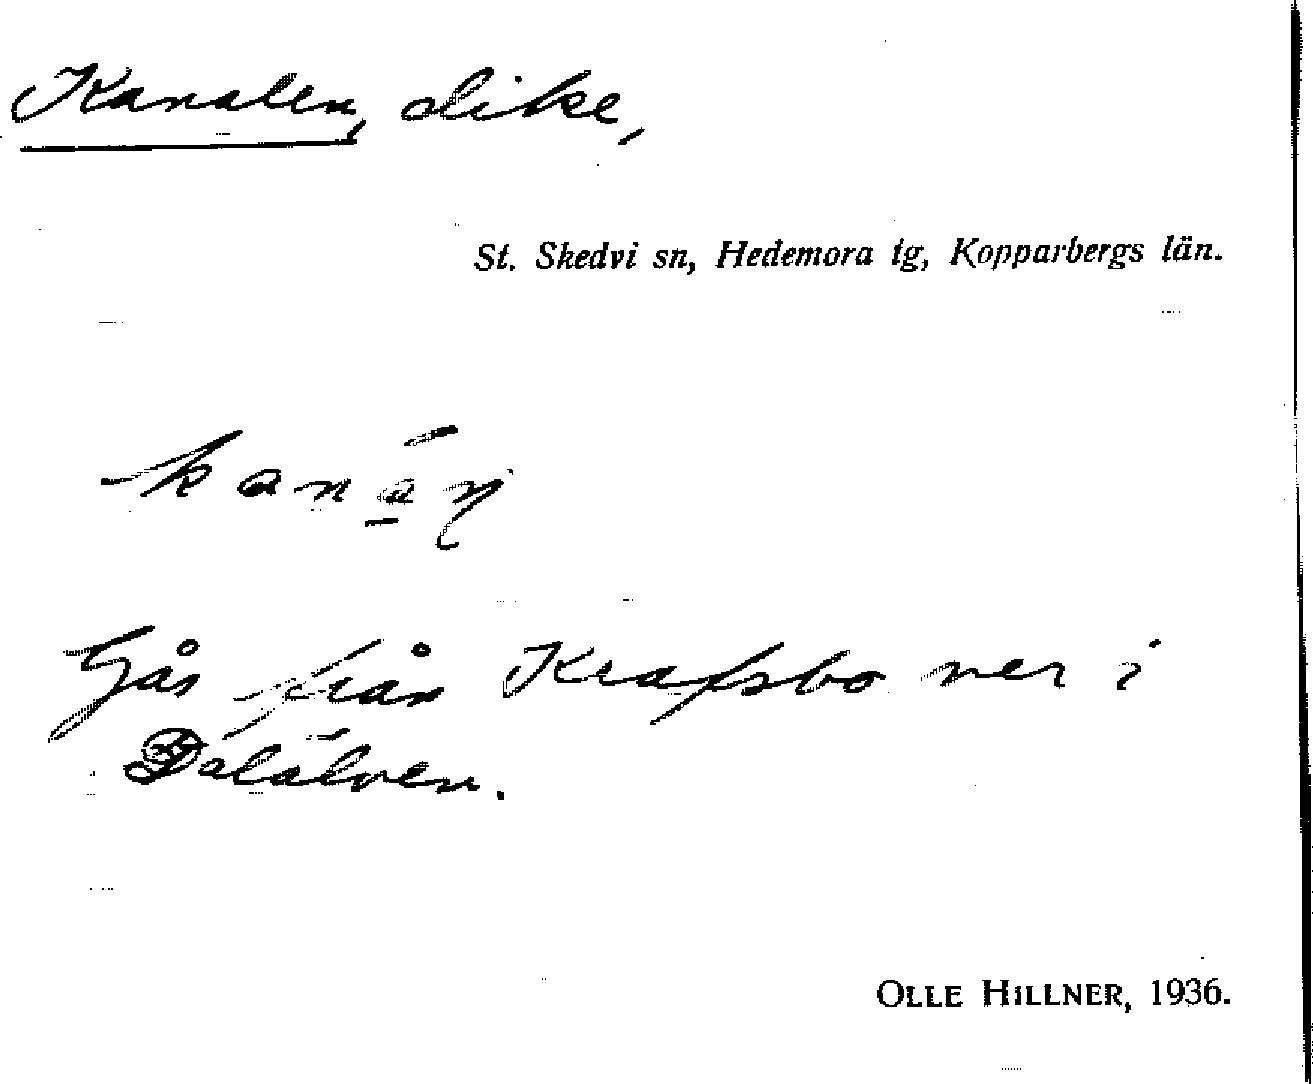 Kanalen, dike,
St. Skedvi sn, Hedemora tg, Kopparbergs län.
Går från Krafsbo ner i
Dalälven.
OLLE HILLNER, 1936.